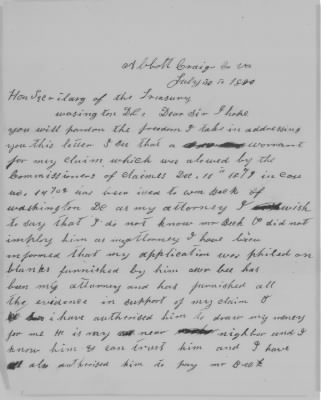 Abbott Craig Co Va
July 30th 1880
Hon Secretary of the Treasury
wasington DC. Dear Sir I hope
you will pardon the freedom I take in addressing
you this letter I see that a warrant
for my claim which was alowed by the
Commissioners of Claimes Dec. 11th 1879 in case
no. has been ised to wm Beck of
washington DC as my attorney I wish
to say that I do not know mr Beck & did not
imploy him as my attorney I have been
informed that my application was philed on
blanks furnished by him lee has
been my attorney and has furnished all
the evidence in support of my claim &
i have authorised him to draw my money
for me He is my near neighbor and I
know him & can trust him and I have
also authorised him to pay mr Beck